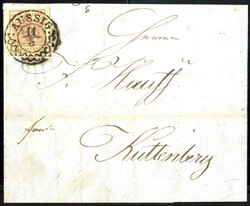 AUSSIG
11
5
Herrn
Kauff
franco
Kuttenberg